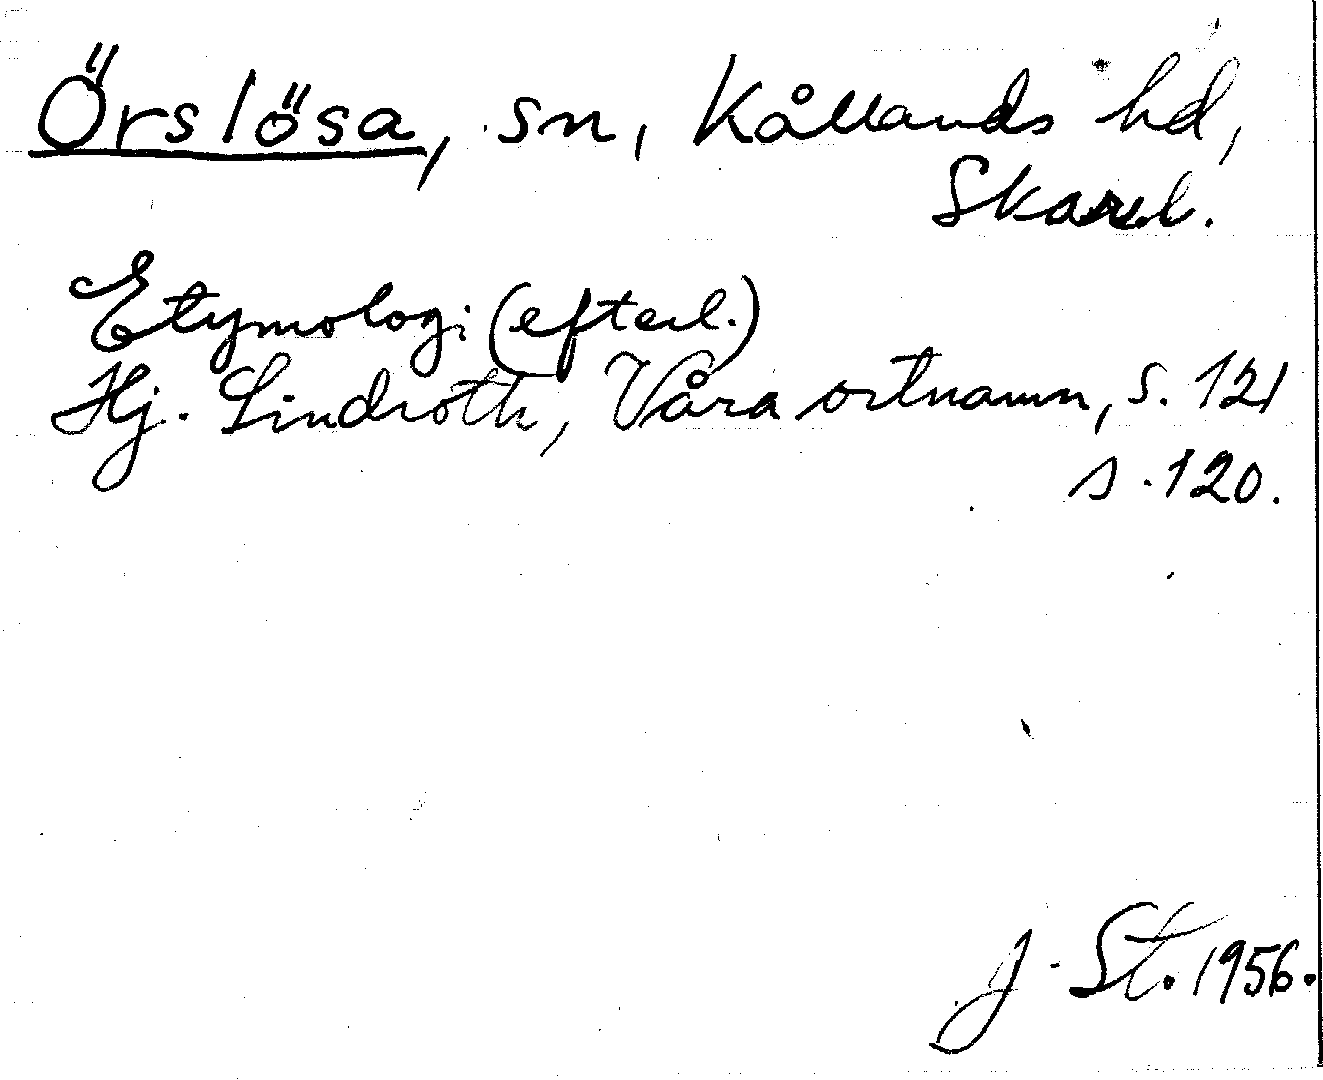 Örslösa, sn, Kållands hd,
Skarab. l.
Etymologi (efterl.)
Hj. Lindroth, Våra ortnamn, s. 121
s. 120.
J. St. 1956.